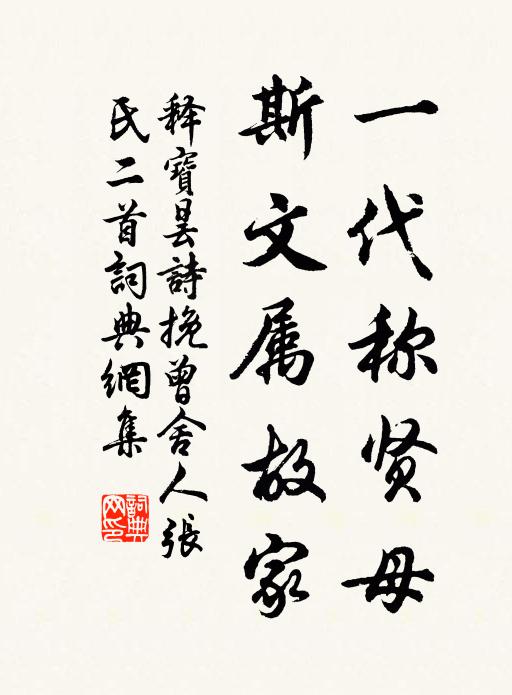 一代称贤母
斯文属故家
释寶昙詩挽曾舍人張
氏二首詞典網集
詞典网印